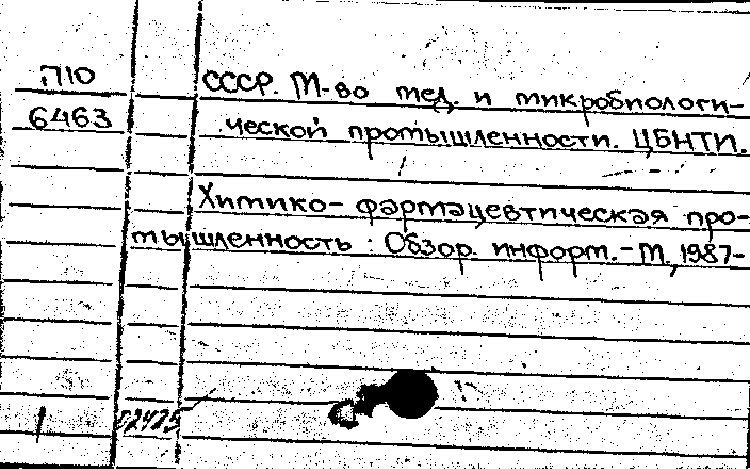 П10
6463
СССР. М-во мед. и микробиологи-
ческой промышленности. ЦБНТИ.
Химико-фармацевтическая про-
мышленность : Обзор. информ. - М., 1987-
1